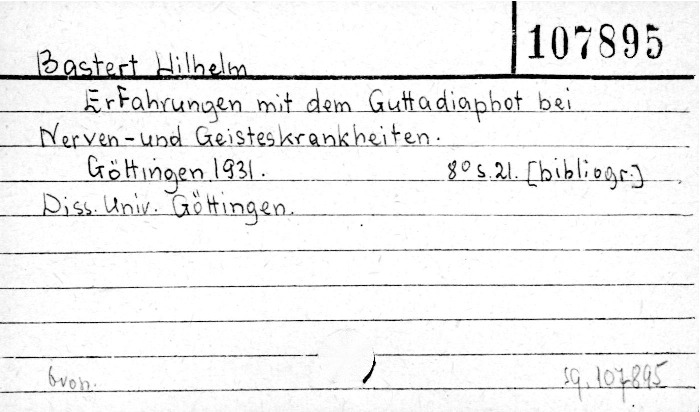 107895
Bastert Wilhelm
Erfahrungen mit dem Guttadiaphot bei
Nerven-und Geisteskrankheiten.
Göttingen 1931. 8° s. 21. [bibliogr.]
Diss. Univ. Göttingen.
sq. 107895